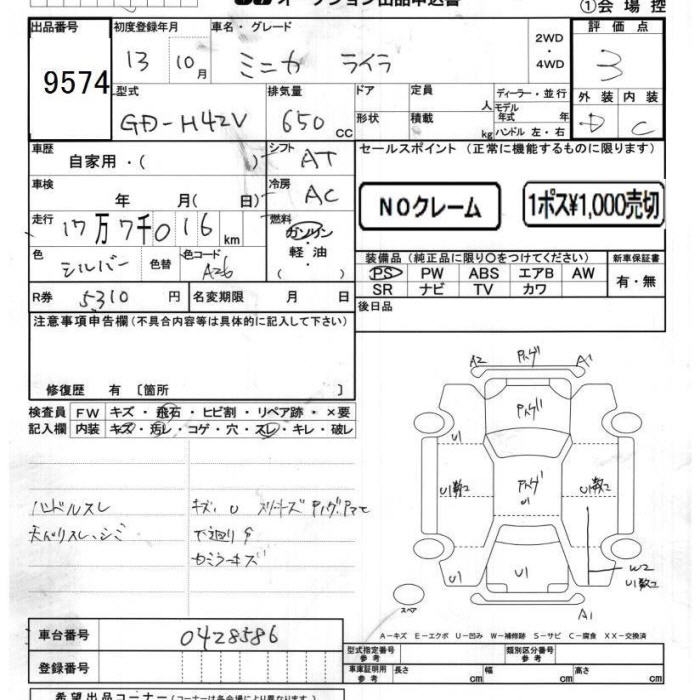 オークション出品申込書
①会場控
出品番号
9574
初度登録年月
13 10月
車名・グレード
ミニカ ライラ
2WD
・
4WD
評価点
3
外装 内装
D C
型式
GD-H42V
排気量
650 CC
ドア
形状
定員 人
積載 kg
ディーラー・並行
モデル年式 年
ハンドル 左・右
車歴
自家用・( )
シフト AT
冷房 AC
セールスポイント (正常に機能するものに限ります)
NOクレーム
1ポス¥1,000売切
車検 年 月( 日)
走行 17万7千016km
燃料
ガソリン
・
軽油
( )
色 シルバー 色替 色コード A26
装備品 (純正品に限り〇をつけてください)
新車保証書
有・無
PS PW ABS エアB AW
SR ナビ TV カワ
R券 5310 円 名変期限 月 日
後日品
注意事項申告欄 (不具合内容等は具体的に記入して下さい)
修復歴 有 〔箇所 〕
検査員記入欄
FW キズ・飛石・ヒビ割・リペア跡・×要
内装 キズ・汚レ・コゲ・穴・スレ・キレ・破レ
ハンドルスレ
キズ、U
天ぺりスレ、シミ
下廻りサ
カミラーキズ
A2 Pハゲ A1
Pハゲ
U1
U1数コ Pハゲ U1 U1数コ
U1 U1 W2
U1数コ
スペア A1
A-キズ E-エクボ U-凹み W-補修跡 S-サビ C-腐食 XX-交換済
車台番号 0428586
登録番号
型式指定番号 参考 類別区分番号 参考
車庫証明用 参考 長さ cm 幅 cm 高さ cm
希望出品コーナー (コースは各会場により異なります)